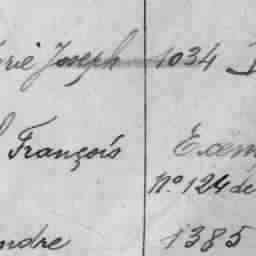 rie Joseph 1034
François Exem
N.º 124 de
ndre 1385